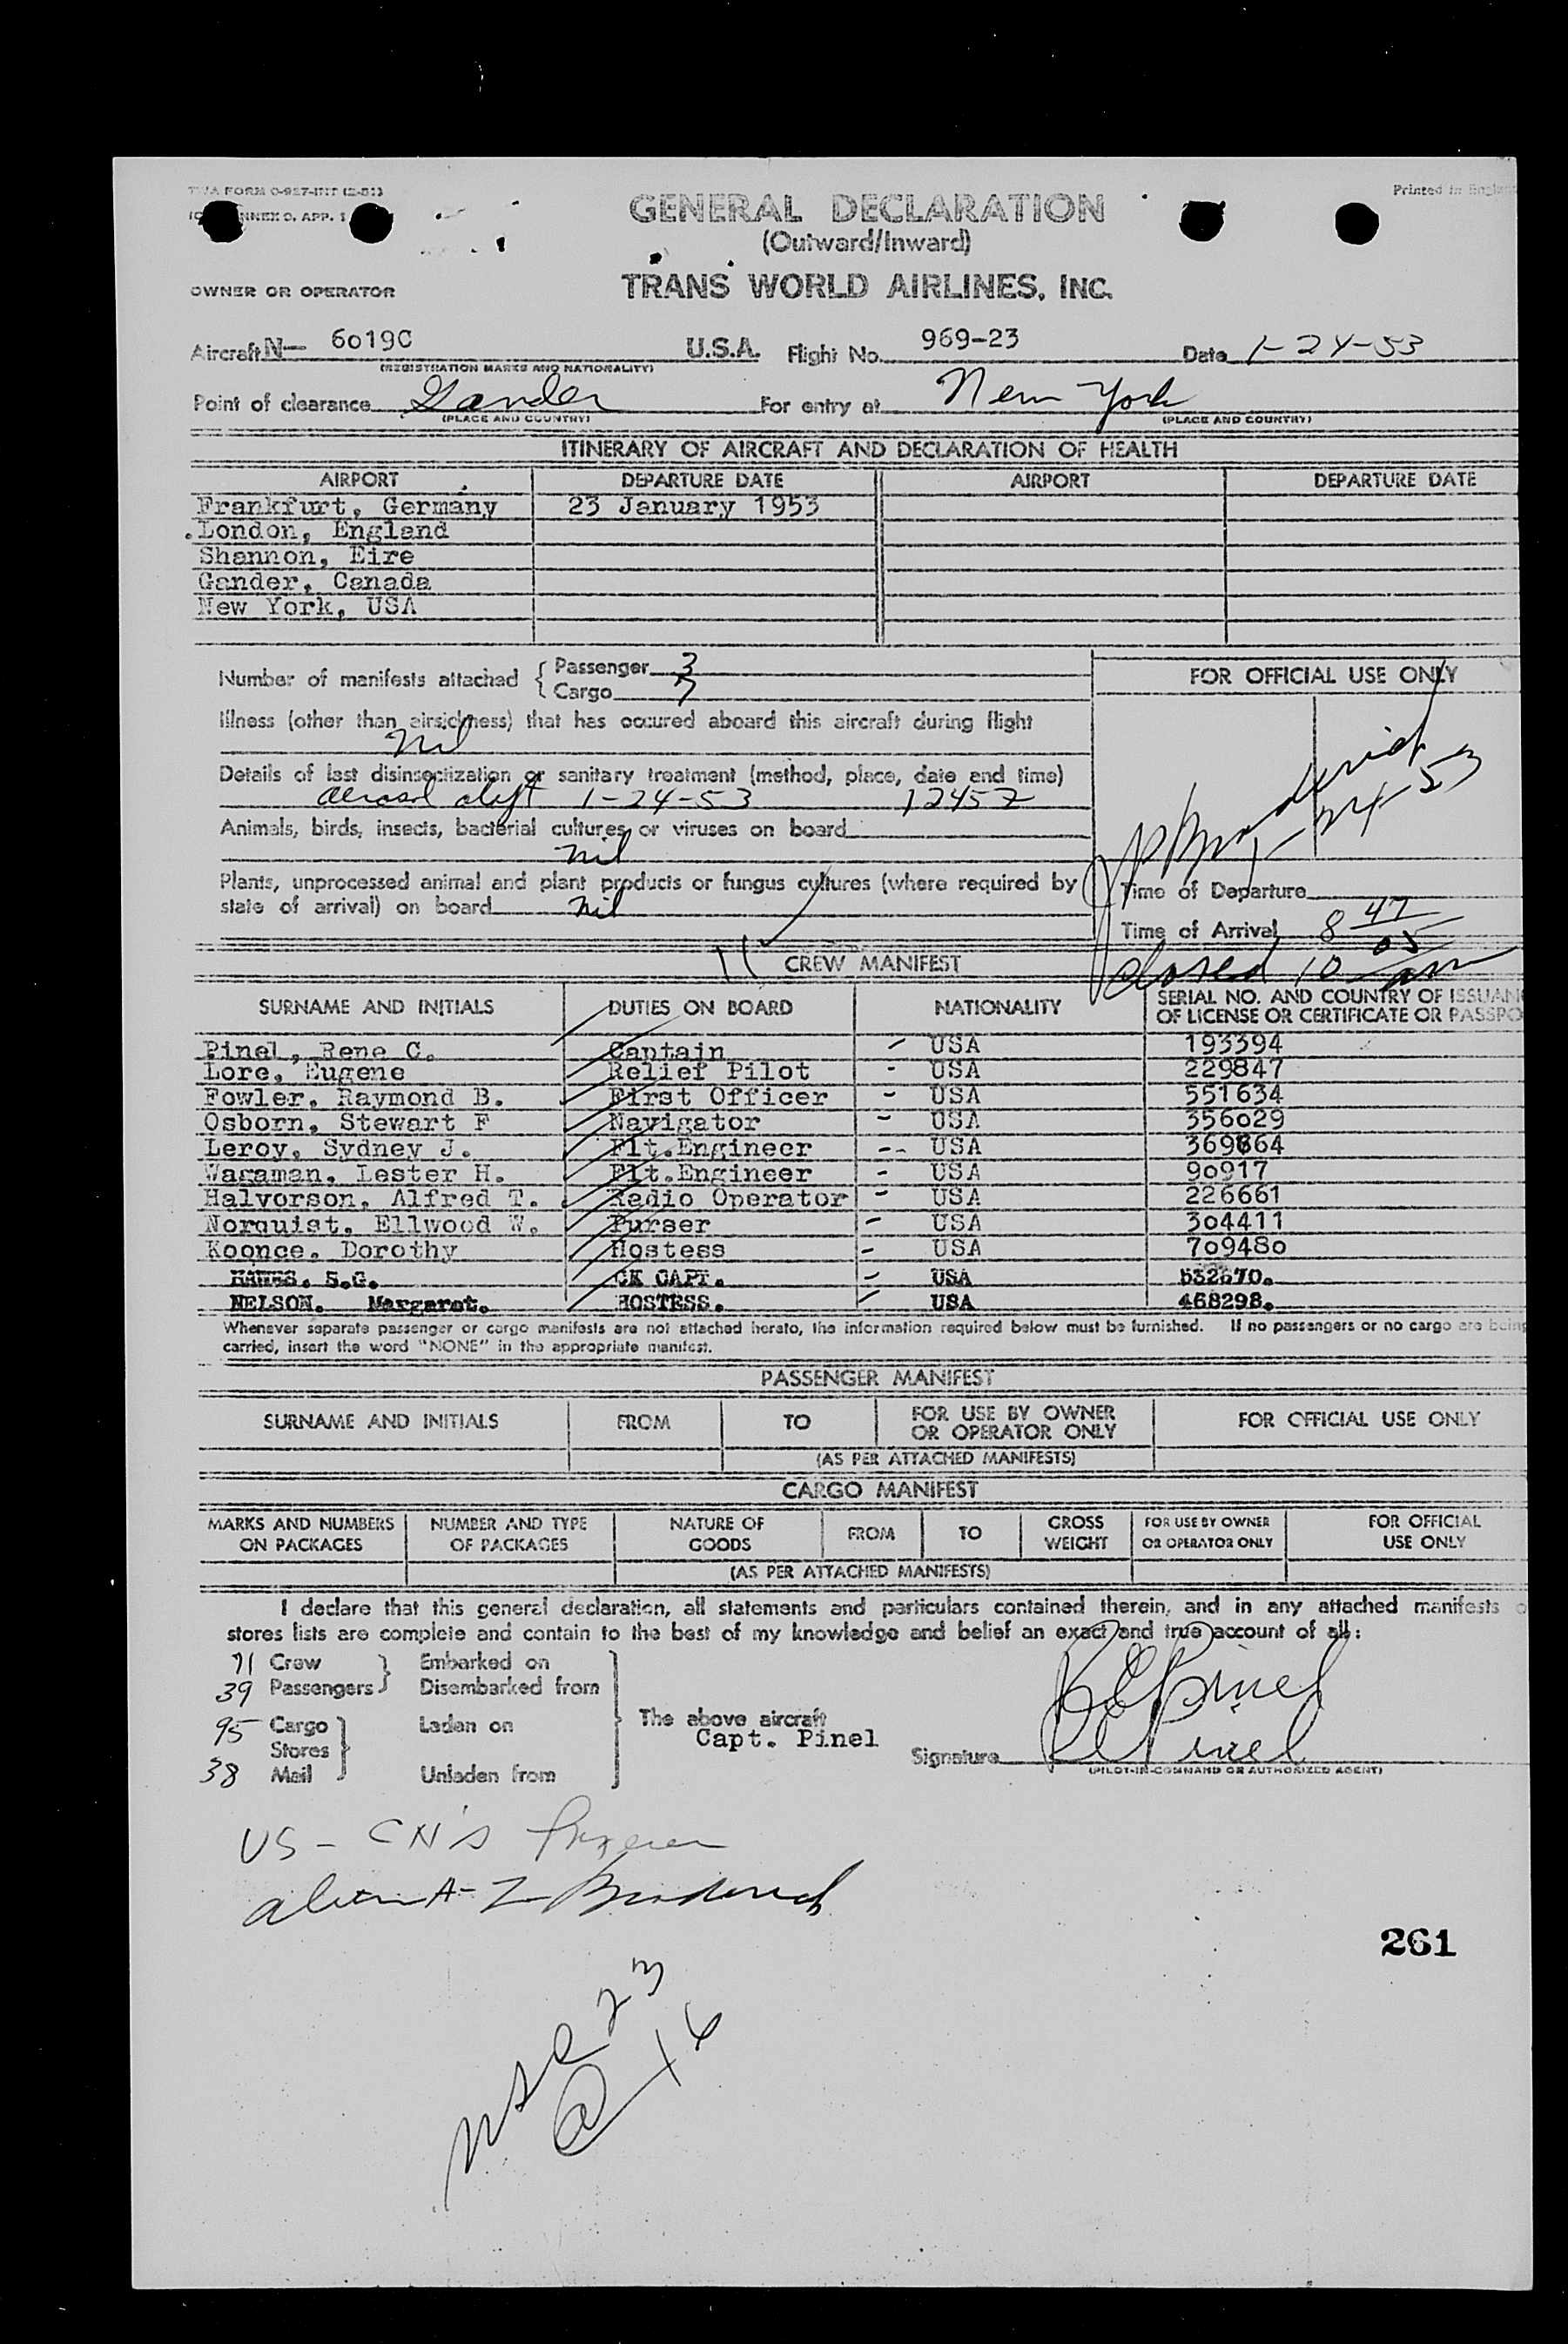 TWA FORM 0-927-INT (2-51)
ANNEX 9, APP. 1
Printed in England
GENERAL DECLARATION
(Outward/Inward)
OWNER OR OPERATOR
TRANS WORLD AIRLINES, INC.
Aircraft N— 6019C U.S.A. Flight No. 969-23 Date 1-24-53
(REGISTRATION MARKS AND NATIONALITY)
Point of clearance Gander For entry at New York
(PLACE AND COUNTRY) (PLACE AND COUNTRY)
ITINERARY OF AIRCRAFT AND DECLARATION OF HEALTH
AIRPORT DEPARTURE DATE AIRPORT DEPARTURE DATE
Frankfurt, Germany 23 January 1953
London, England
Shannon, Eire
Gander, Canada
New York, USA
Number of manifests attached { Passenger 3
Cargo 7
FOR OFFICIAL USE ONLY
Illness (other than airsickness) that has occured aboard this aircraft during flight
Nil
Details of last disinsectization or sanitary treatment (method, place, date and time)
aerosol aloft 1-24-53 1245Z
Animals, birds, insects, bacterial cultures, or viruses on board
nil
Plants, unprocessed animal and plant products or fungus cultures (where required by
state of arrival) on board nil
1-24-53
Time of Departure
Time of Arrival 8 47
closed 10 05 am
11 CREW MANIFEST
SURNAME AND INITIALS DUTIES ON BOARD NATIONALITY SERIAL NO. AND COUNTRY OF ISSUAN
OF LICENSE OR CERTIFICATE OR PASSPO
Pinel, Rene C. Captain - USA 193394
Lore, Eugene Relief Pilot - USA 229847
Fowler, Raymond B. First Officer - USA 551634
Osborn, Stewart F Navigator - USA 356029
Leroy, Sydney J. Flt.Engineer -- USA 369864
Wagaman, Lester H. Flt.Engineer - USA 90917
Halvorson, Alfred T. Radio Operator - USA 226661
Norquist, Ellwood W. Purser - USA 304411
Koonce, Dorothy Hostess - USA 709480
HAWES. S.G. CK CAPT. - USA 532670.
NELSON. Margaret. HOSTESS. - USA 468298.
Whenever separate passenger or cargo manifests are not attached hereto, the information required below must be furnished. If no passengers or no cargo are being
carried, insert the word "NONE" in the appropriate manifest.
PASSENGER MANIFEST
SURNAME AND INITIALS FROM TO FOR USE BY OWNER OR OPERATOR ONLY FOR OFFICIAL USE ONLY
(AS PER ATTACHED MANIFESTS)
CARGO MANIFEST
MARKS AND NUMBERS ON PACKAGES NUMBER AND TYPE OF PACKAGES NATURE OF GOODS FROM TO GROSS WEIGHT FOR USE BY OWNER OR OPERATOR ONLY FOR OFFICIAL USE ONLY
(AS PER ATTACHED MANIFESTS)
I declare that this general declaration, all statements and particulars contained therein, and in any attached manifests o
stores lists are complete and contain to the best of my knowledge and belief an exact and true account of all:
11 Crew Embarked on
39 Passengers Disembarked from
95 Cargo Laden on
Stores
38 Mail Unladen from
The above aircraft
Capt. Pinel
R C Pinel
Signature R C Pinel
(PILOT-IN-COMMAND OR AUTHORIZED AGENT)
US - CN's
alien A-Z Broderick
261
USC 23
@ 16